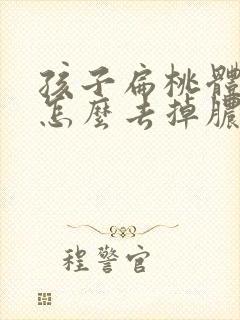 孩子扁桃體
怎麼去掉膿
程警官